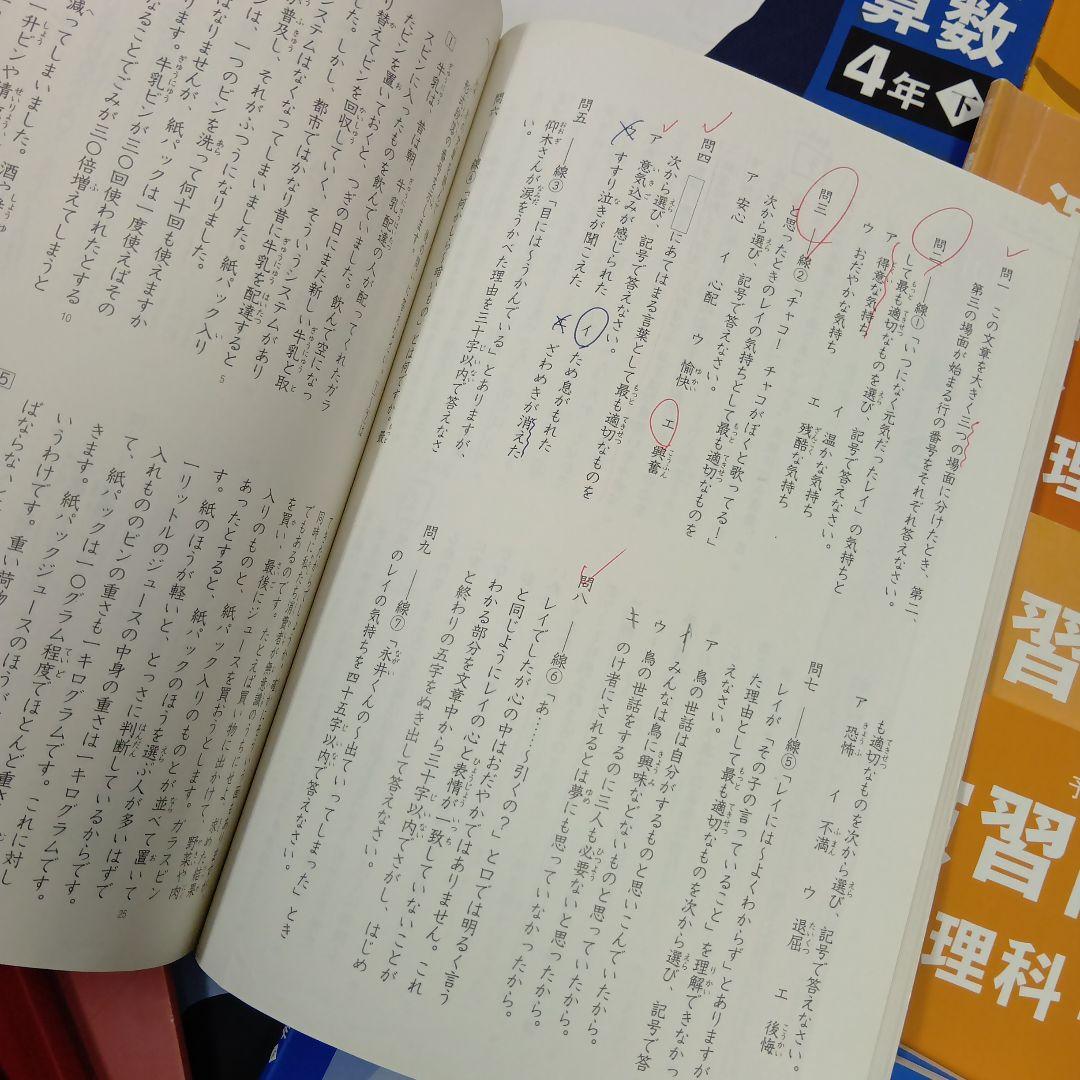 問一 この文章を大きく三つの場面に分けたとき、第二、
第三の場面が始まる行の番号をそれぞれ答えなさい。
問二 ――線①「いつになく元気だったレイ」の気持ちと
して最も適切なものを選び、記号で答えなさい。
ア 得意な気持ち イ 温かな気持ち
ウ おだやかな気持ち エ 残酷な気持ち
問三 ――線②「チャコ！ チャコがぼくと歌ってる！」
と思ったときのレイの気持ちとして最も適切なものを
次から選び、記号で答えなさい。
ア 安心 イ 心配 ウ 愉快 エ 興奮
問四 にあてはまる言葉として最も適切なものを
次から選び、記号で答えなさい。
ア 意気込みが感じられた イ ため息がもれた
すすり泣きが聞こえた ざわめきが消えた
問五 ――線③「目には～うかんでいる」とありますが、
仰木さんが涙をうかべた理由を三十字以内で答えなさ
い。
問六
も適切なものを次から選び、記号で答えなさい。
ア 恐怖 イ 不満 ウ 退屈 エ 後悔
問七 ――線⑤「レイには～よくわからず」とありますが、
レイが「その子の言っていること」を理解できなかっ
た理由として最も適切なものを次から選び、記号で答
えなさい。
ア 鳥の世話は自分がするものと思いこんでいたから。
イ みんなは鳥に興味などないものと思っていたから。
ウ 鳥の世話をするのに三人も必要ないと思ったから。
エ のけ者にされるとは夢にも思っていなかったから。
問八 ――線⑥「あ……～引くの？」と口では明るく言う
レイでしたが心の中はおだやかではありません。これ
と同じようにレイの心と表情が一致していないことが
わかる部分を文章中から三十字以内でさがし、はじめ
と終わりの五字をぬき出して答えなさい。
問九 ――線⑦「永井くんの～出ていってしまった」とき
のレイの気持ちを四十五字以内で答えなさい。
牛乳は、昔は朝、牛乳配達の人が配ってくれたガラ
スビンに入ったものを飲んでいました。飲んで空になっ
たビンを置いておくと、つぎの日にまた新しい牛乳と取
り替えてビンを回収していく、そういうシステムがあり
ました。しかし、都市ではかなり昔に牛乳を配達すると
5
ステムはなくなってしまいました。紙パック入り
が普及し、それがふつうになりました。
は、一つのビンを洗って何十回も使えますか
はなりませんが、紙パックは一度使えばその
ります。牛乳ビンが三〇回使われたとする
10
なることでごみが三〇倍増えてしまうと
減ってしまいました。
一升ビンや
を買い、最後にジュースを買おうとします。ガラスビン
入りのものと、紙パック入りのものとが並べて置いて
あったとすると、紙パックのほうを選ぶ人が多いはずで
す。紙のほうが軽いと、とっさに判断しているからです。
25
一リットルのジュースの中身の重さは一キログラムです。
入れもののビンの重さも一キログラムです。これに対し
て、紙パックは一〇グラム程度でほとんど重さ
きます。紙パックジュースのほうが
いうわけです。重い荷物
ばならない
5
算数
4年 下
理
習
習
理科